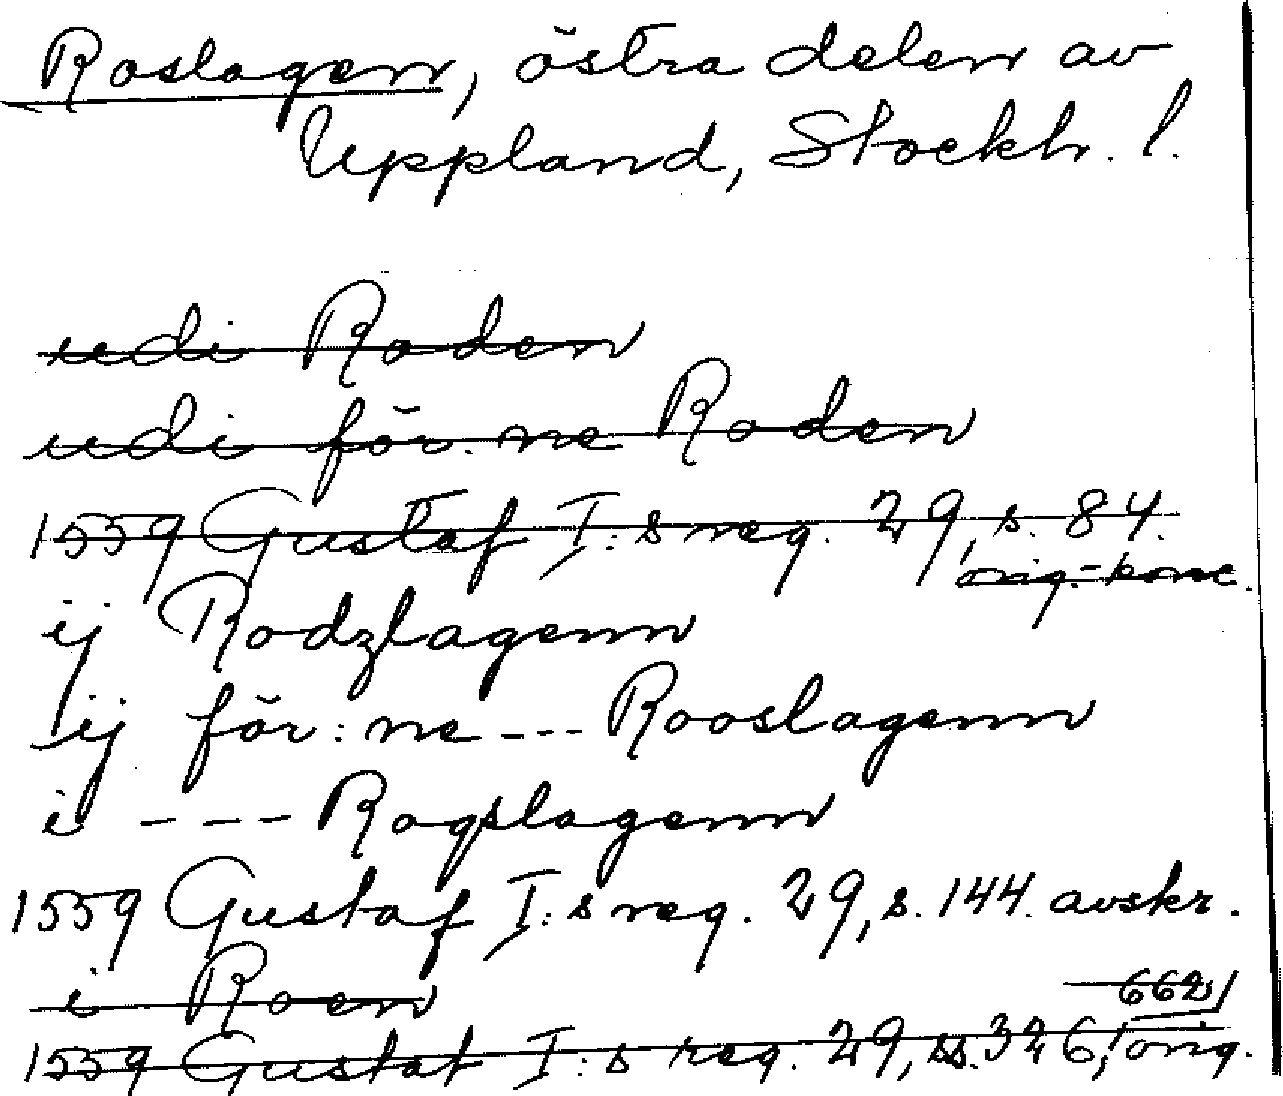 Roslagen, östra delen av
Uppland, Stockh. l.
udi Roden
udi för. ne Roden
1559 Gustaf I:s reg. 29, s. 84.
orig.-konc.
ij Rodzlagenn
ij för: ne --- Rooslagenn
i --- Rogslagenn
1559 Gustaf I:s reg. 29, s. 144. avskr.
i Roen
662
1559 Gustaf I:s reg. 29, ss. 326, orig.